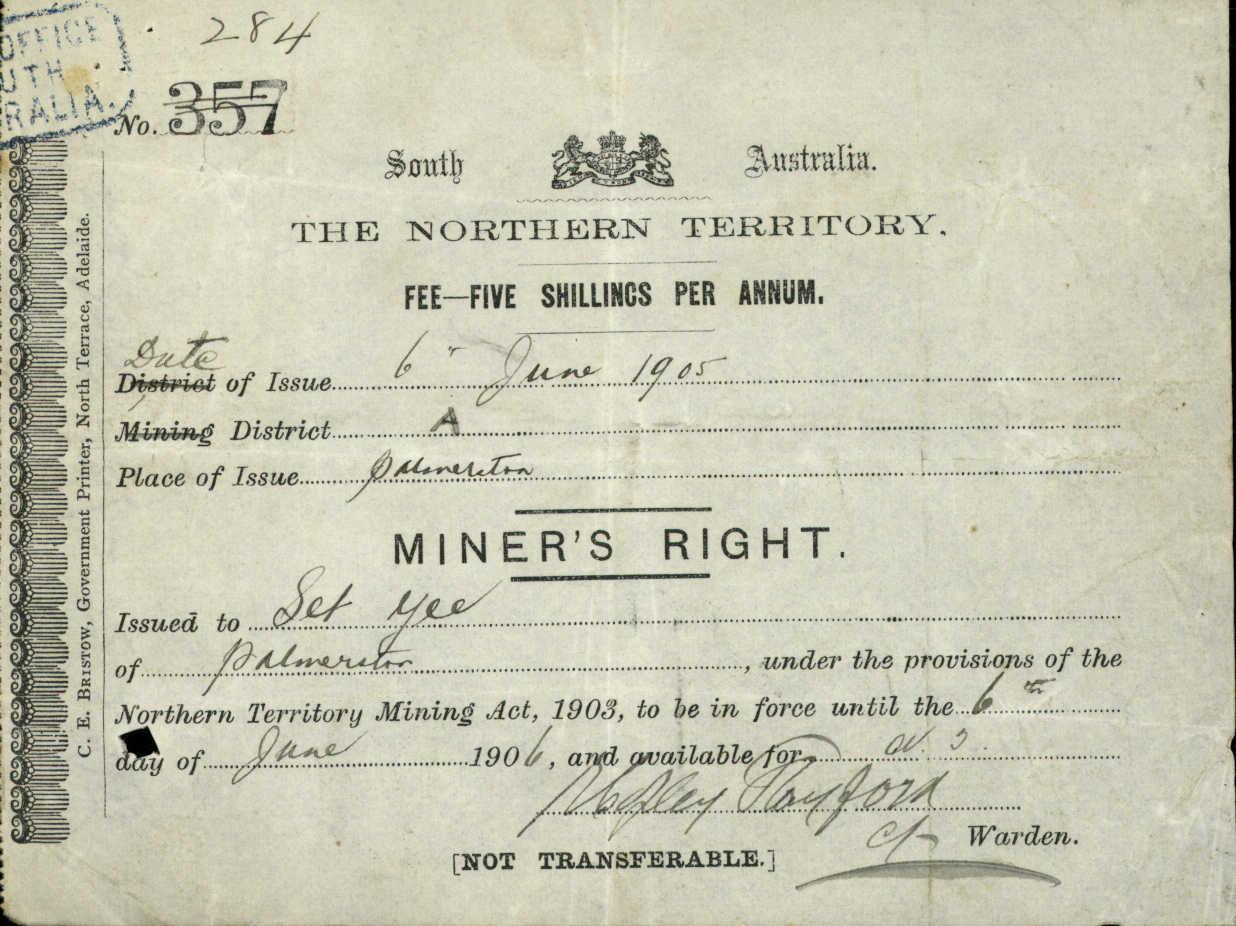 284
OFFICE
UTH
RALIA.
No. 357
South Australia.
THE NORTHERN TERRITORY.
FEE—FIVE SHILLINGS PER ANNUM.
Date
District of Issue 6" June 1905
Mining District A
Place of Issue Palmerston
MINER'S RIGHT.
Issued to Set Yee
of Palmerston, under the provisions of the
Northern Territory Mining Act, 1903, to be in force until the 6th
day of June 1906, and available for
Warden.
[NOT TRANSFERABLE.]
C. E. BRISTOW, Government Printer, North Terrace, Adelaide.